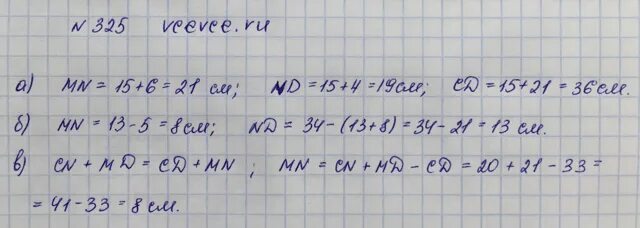 N 325 veevee.ru
а) MN = 15+6 = 21 см; ND = 15+4 = 19 см; CD = 15+21 = 36 см.
б) MN = 13-5 = 8 см; ND = 34-(13+8) = 34-21 = 13 см.
в) CN + MD = CD + MN ; MN = CN + MD - CD = 20 + 21 - 33 =
= 41-33 = 8 см.